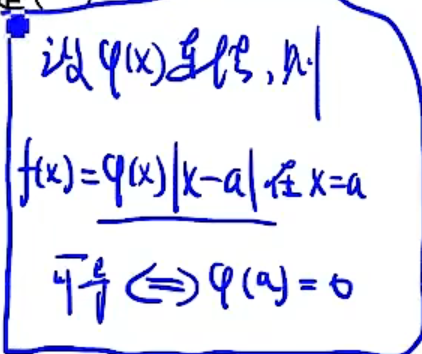 设φ(x)连续,则
f(x)=φ(x)|x-a|在x=a
可导⇔φ(a)=0